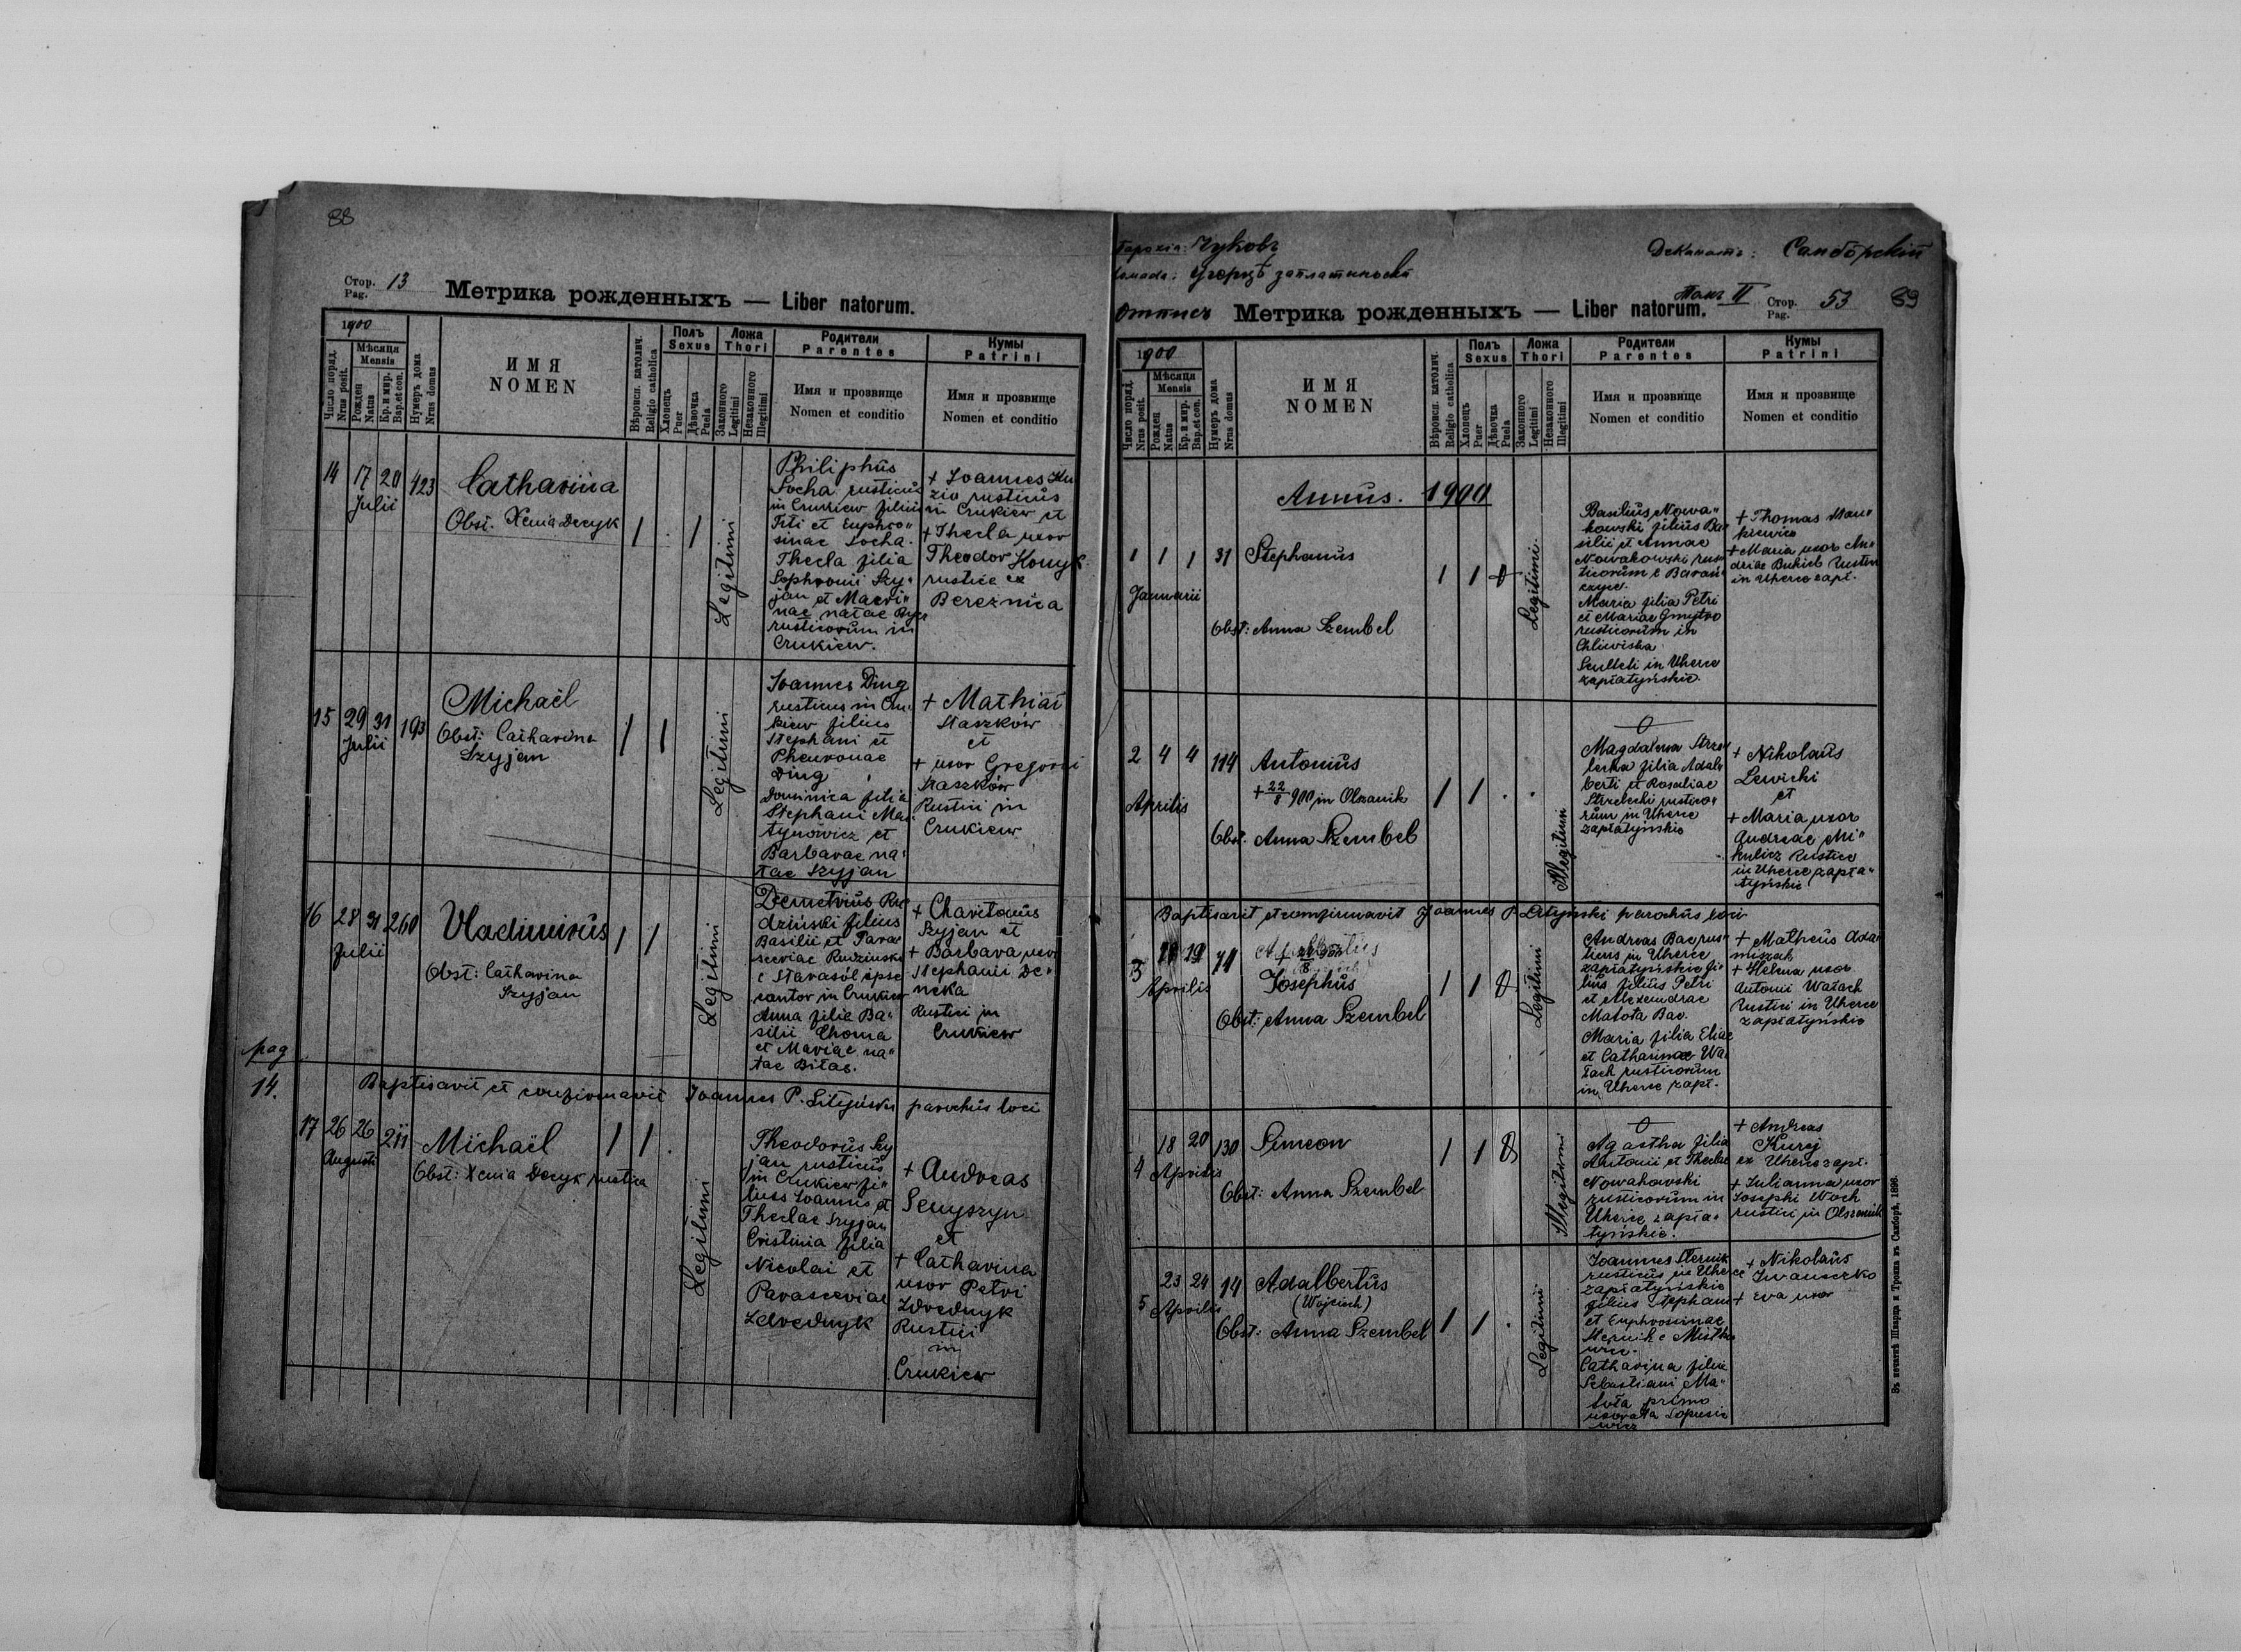 88
Стор. 13
Pag.
Метрика рожденныхъ — Liber natorum.
1900
Число поряд.
Nrus posit.
Мѣсяця
Mensis
Рожден
Natus
Кр. и мир.
Bap. et con.
Нумеръ дома
Nrus domus
ИМЯ
NOMEN
Вѣроисп. католич.
Religio catholica
Полъ
Sexus
Хлопець
Puer
Дѣвочка
Puela
Ложа
Thori
Законного
Legitimi
Незаконного
Illegitimi
Родители
Parentes
Имя и прозвище
Nomen et conditio
Кумы
Patrini
Имя и прозвище
Nomen et conditio
14 17 20 423 Catharina
Julii
Obst. Xenia Decyk
1 . 1
Legitimi
Philiphus
Socha rusticus
in Crukiew filius
Titi et Euphro"
sinae Socha.
Thecla filia
Sophronii Szy"
jan et Macri"
nae natae
rusticorum in
Crukiew.
+ Joannes
rusticus
in Crukiew et
+ Thecla uxor
Theodor Konyk
rustice ex
Bereznica
15 29 31 193 Michaël
Julii
Obst: Catharina
Szyjan
1 1
Legitimi
Joannes Ding
rusticus in Cru"
kiew filius
Stephani et
Pheuronae
Ding
Dominica filia
Stephani Ma"
tynowicz et
Barbarae na"
tae Szyjan
+ Mathias
Staszków
et
+ uxor Gregorii
Staszków
Rustici in
Crukiew
16 28 31 260 Vladimirus
Julii
Obst: Catharina
Szyjan
1 1
Legitimi
Demetrius Ru"
dziński filius
Basilii et Para"
sceviae Rudzinski
e Starasól ipse
cantor in Crukiew
Anna filia Ba"
silii Choma
et Mariae na"
tae Bilas.
+ Charitonus
Szyjan et
+ Barbara uxor
Stephanii De"
neka
Rustici in
Crukiew
pag
14.
Baptisavit et confirmavit Joannes P. Lityński parochus loci
17 26 26 211 Michaël
Augusti
Obst: Xenia Decyk rustica
1 1 .
Legitimi
Theodorus Szy
jan rusticus
in Crukiew fi"
lius Joannis et
Theclae Szyjan
Cristina filia
Nicolai et
Parasceviae
Zdrednyk
+ Andreas
Senyszyn
et
+ Catharina
uxor Petri
Zdrednyk
Rustici
in
Crukiew
Парохія: Чуковъ
Громада: Угерцѣ заплатиньскіи
Деканатъ: Самборскій
Отписъ Метрика рожденныхъ — Liber natorum.
Томъ II
Стор. 53
Pag.
89
1900
Число поряд.
Nrus posit.
Мѣсяця
Mensis
Рожден
Natus
Кр. и мир.
Bap. et con.
Нумеръ дома
Nrus domus
ИМЯ
NOMEN
Вѣроисп. католич.
Religio catholica
Полъ
Sexus
Хлопець
Puer
Дѣвочка
Puela
Ложа
Thori
Законного
Legitimi
Незаконного
Illegitimi
Родители
Parentes
Имя и прозвище
Nomen et conditio
Кумы
Patrini
Имя и прозвище
Nomen et conditio
Annus. 1900
1 1 1 31 Stephanus
Januarii
Obst: Anna Szembel
1 1
Legitimi.
Basilius Nowa"
kowski filius Ba"
silii et Annae
Nowakowski rus"
ticorum e Barań"
czyce.
Maria filia Petri
et Mariae Gmytro
rusticorum in
Chliwiska
Sculteti in Uherce
zapłatyńskie.
+ Thomas Man"
kiewicz
+ Maria uxor An"
driae Bukiel Rustici
in Uherce zapł.
2 4 4 114 Antonius
Aprilis
+ 22/8 900 in Olszanik
Obst. Anna Szembel
1 1 . .
Illegitimi
Magdalena Strze"
lecka filia Adal"
berti et Rosaliae
Strzelecki rustico"
rum in Uherce
zapłatyńskie
+ Nikolaus
Lewicki
et
+ Maria uxor
Andreae Mi"
kulicz Rustice
in Uherce zapła"
tyńskie
Baptisavit et confirmavit Joannes P. Lityński parochus loci
3 19 71
Aprilis
Josephus
Obst: Anna Szembel
1 1
Legitimi
Andreas Bac rus"
ticus in Uherce
zapłatyńskie fi"
lius filius Petri
et Alexandrae
Matota Bac.
Maria filia Eliae
et Catharinae Wa"
łach rusticorum
in Uherce zapł.
+ Matheus Ada"
miszak
+ Helena uxor
Antonii Wałach
Rustici in Uherce
zapłatyńskie
4 18 20 130 Simeon
Aprilis
Obst: Anna Szembel
1 1
Illegitimi
Agastha filia
Antonii et Theclae
Nowakowski
rusticorum in
Uherce zapła"
tyńskie.
+ Andreas
Kurej
ex Uherce zapł.
+ Julianna uxor
Josephi Woch
rustici in Olszanik
5 23 24 14 Adalbertus
Aprilis
(Wojciech)
Obst: Anna Szembel
1 1 .
Legitimi
Joannes Sternik
rusticus in Uherce
zapłatyńskie
filius Stephani
et Euphrosinae
Sternik e Mistko
wice.
Catharina filia
Sebastiani Ma"
tota primo
uxorata Łopusie
wicz
+ Nikolaus
Iwaneczko
+ Eva uxor
Въ печатнѣ Шварца и Трояна въ Самборѣ. 1896.